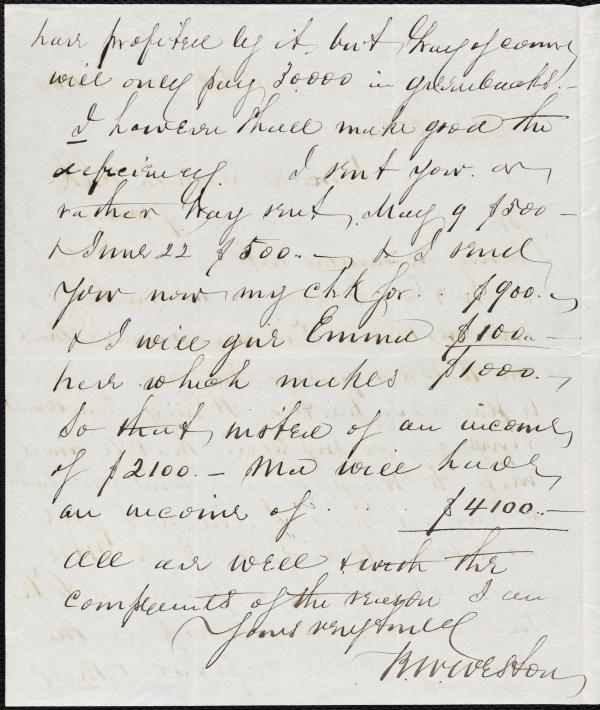 have profited by it, but Gray of course
will only pay 30.000 in greenbacks.–
I however shall make good the
deficiency. I sent you. or
rather Gray sent, May 9 $500–
& June 22 $500.– & I send
you now my chk for. $900.–
& I will give Emma $100.–
here which makes $1000.–
So that, insted of an income
of $2100.– Ma will have
an income of . . . $4100.–
All are well & with the
compliments of the season I am
Yours very truly
R.W. Weston